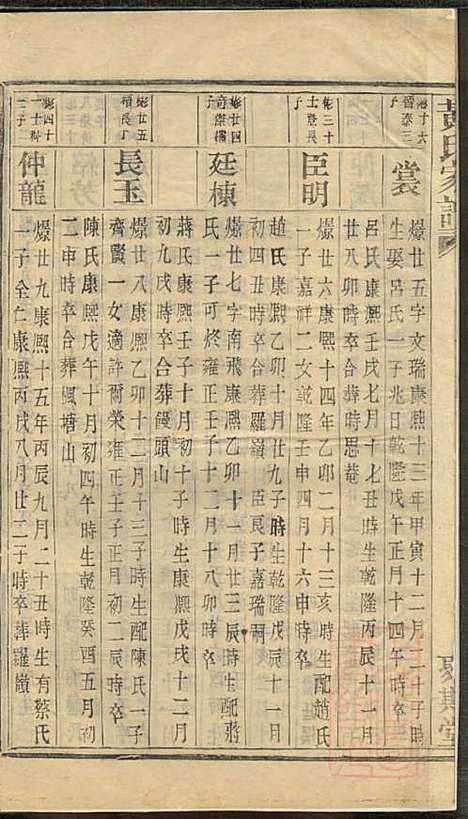 黃氏家譜
彪十六
晉泰三
子
裳
爆廿五字文瑞康熙十三年甲寅十二月二十子時
生娶呂氏一子兆日乾隆戊午正月十四午時卒
呂氏康熙壬戌七月十七丑時生乾隆丙辰十一月
廿八卯時卒合葬時思菴
彪三十
士啓長
子
臣明
爆廿六康熙十四年乙卯二月十三亥時生配趙氏
一子嘉祥二女乾隆壬申四月十六申時卒
趙氏康熙乙卯十月廿九子時生乾隆戊辰十一月
初四丑時卒合葬羅嶺 臣良子嘉瑞
彪廿四
子
廷棟
爆廿七字南飛康熙乙卯十一月廿三辰時生配蔣
氏一子可終雍正壬子十二月十八卯時卒
蔣氏康熙壬子十月十子時生康熙戊戌十二月
初九戌時卒合葬饅頭山
彪廿五
長子
長玉
爆廿八康熙乙卯十二月十三子時生配陳氏一子
齊賢一女適許爾榮雍正壬子正月初二辰時卒
陳氏康熙戊午十月初四午時生乾隆癸酉五月初
二申時卒合葬楓塘山
彪四十
一士
三子
仲龍
爆廿九康熙十五年丙辰九月二十丑時生有蔡氏
一子全仁康熙丙戌八月廿二子時卒葬羅嶺